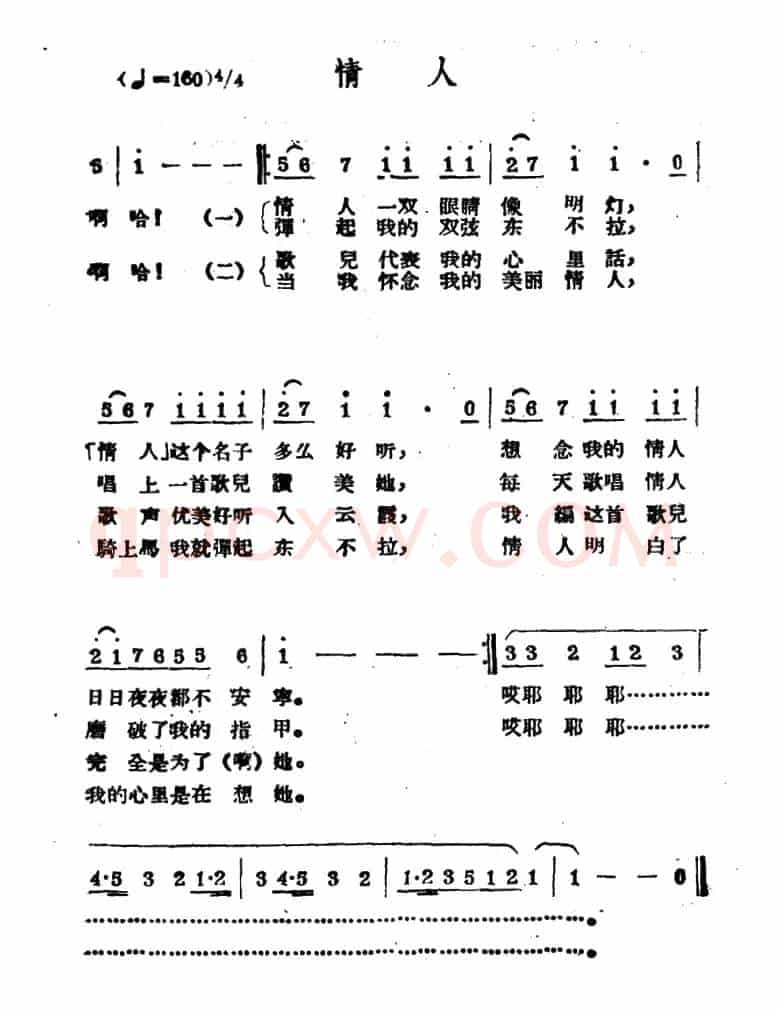 (♩=160) 4/4 情人
5 | i — — — ‖: 56 7 ii ii | 27 i i · 0 |
啊哈! (一) 情人一双眼睛像明灯,
彈起我的双弦东不拉,
啊哈! (二) 歌兒代表我的心里話,
当我怀念我的美丽情人,
567 iiii | 27 i i · 0 | 567 ii ii |
「情人」这个名子多么好听, 想念我的情人
唱上一首歌兒讚美她, 每天歌唱情人
歌声优美好听入云霞, 我編这首歌兒
騎上馬我就彈起东不拉, 情人明白了
qpcxw.com
2i7655 6 | i — — — :‖ 33 2 12 3 |
日日夜夜都不安宁。 哎耶耶耶………
磨破了我的指甲。 哎耶耶耶………
完全是为了(啊)她。
我的心里是在想她。
4·5 3 2 1·2 | 3 4·5 3 2 | 1·235121 | 1 — — 0 ‖
………………………………………………。
………………………………………………。